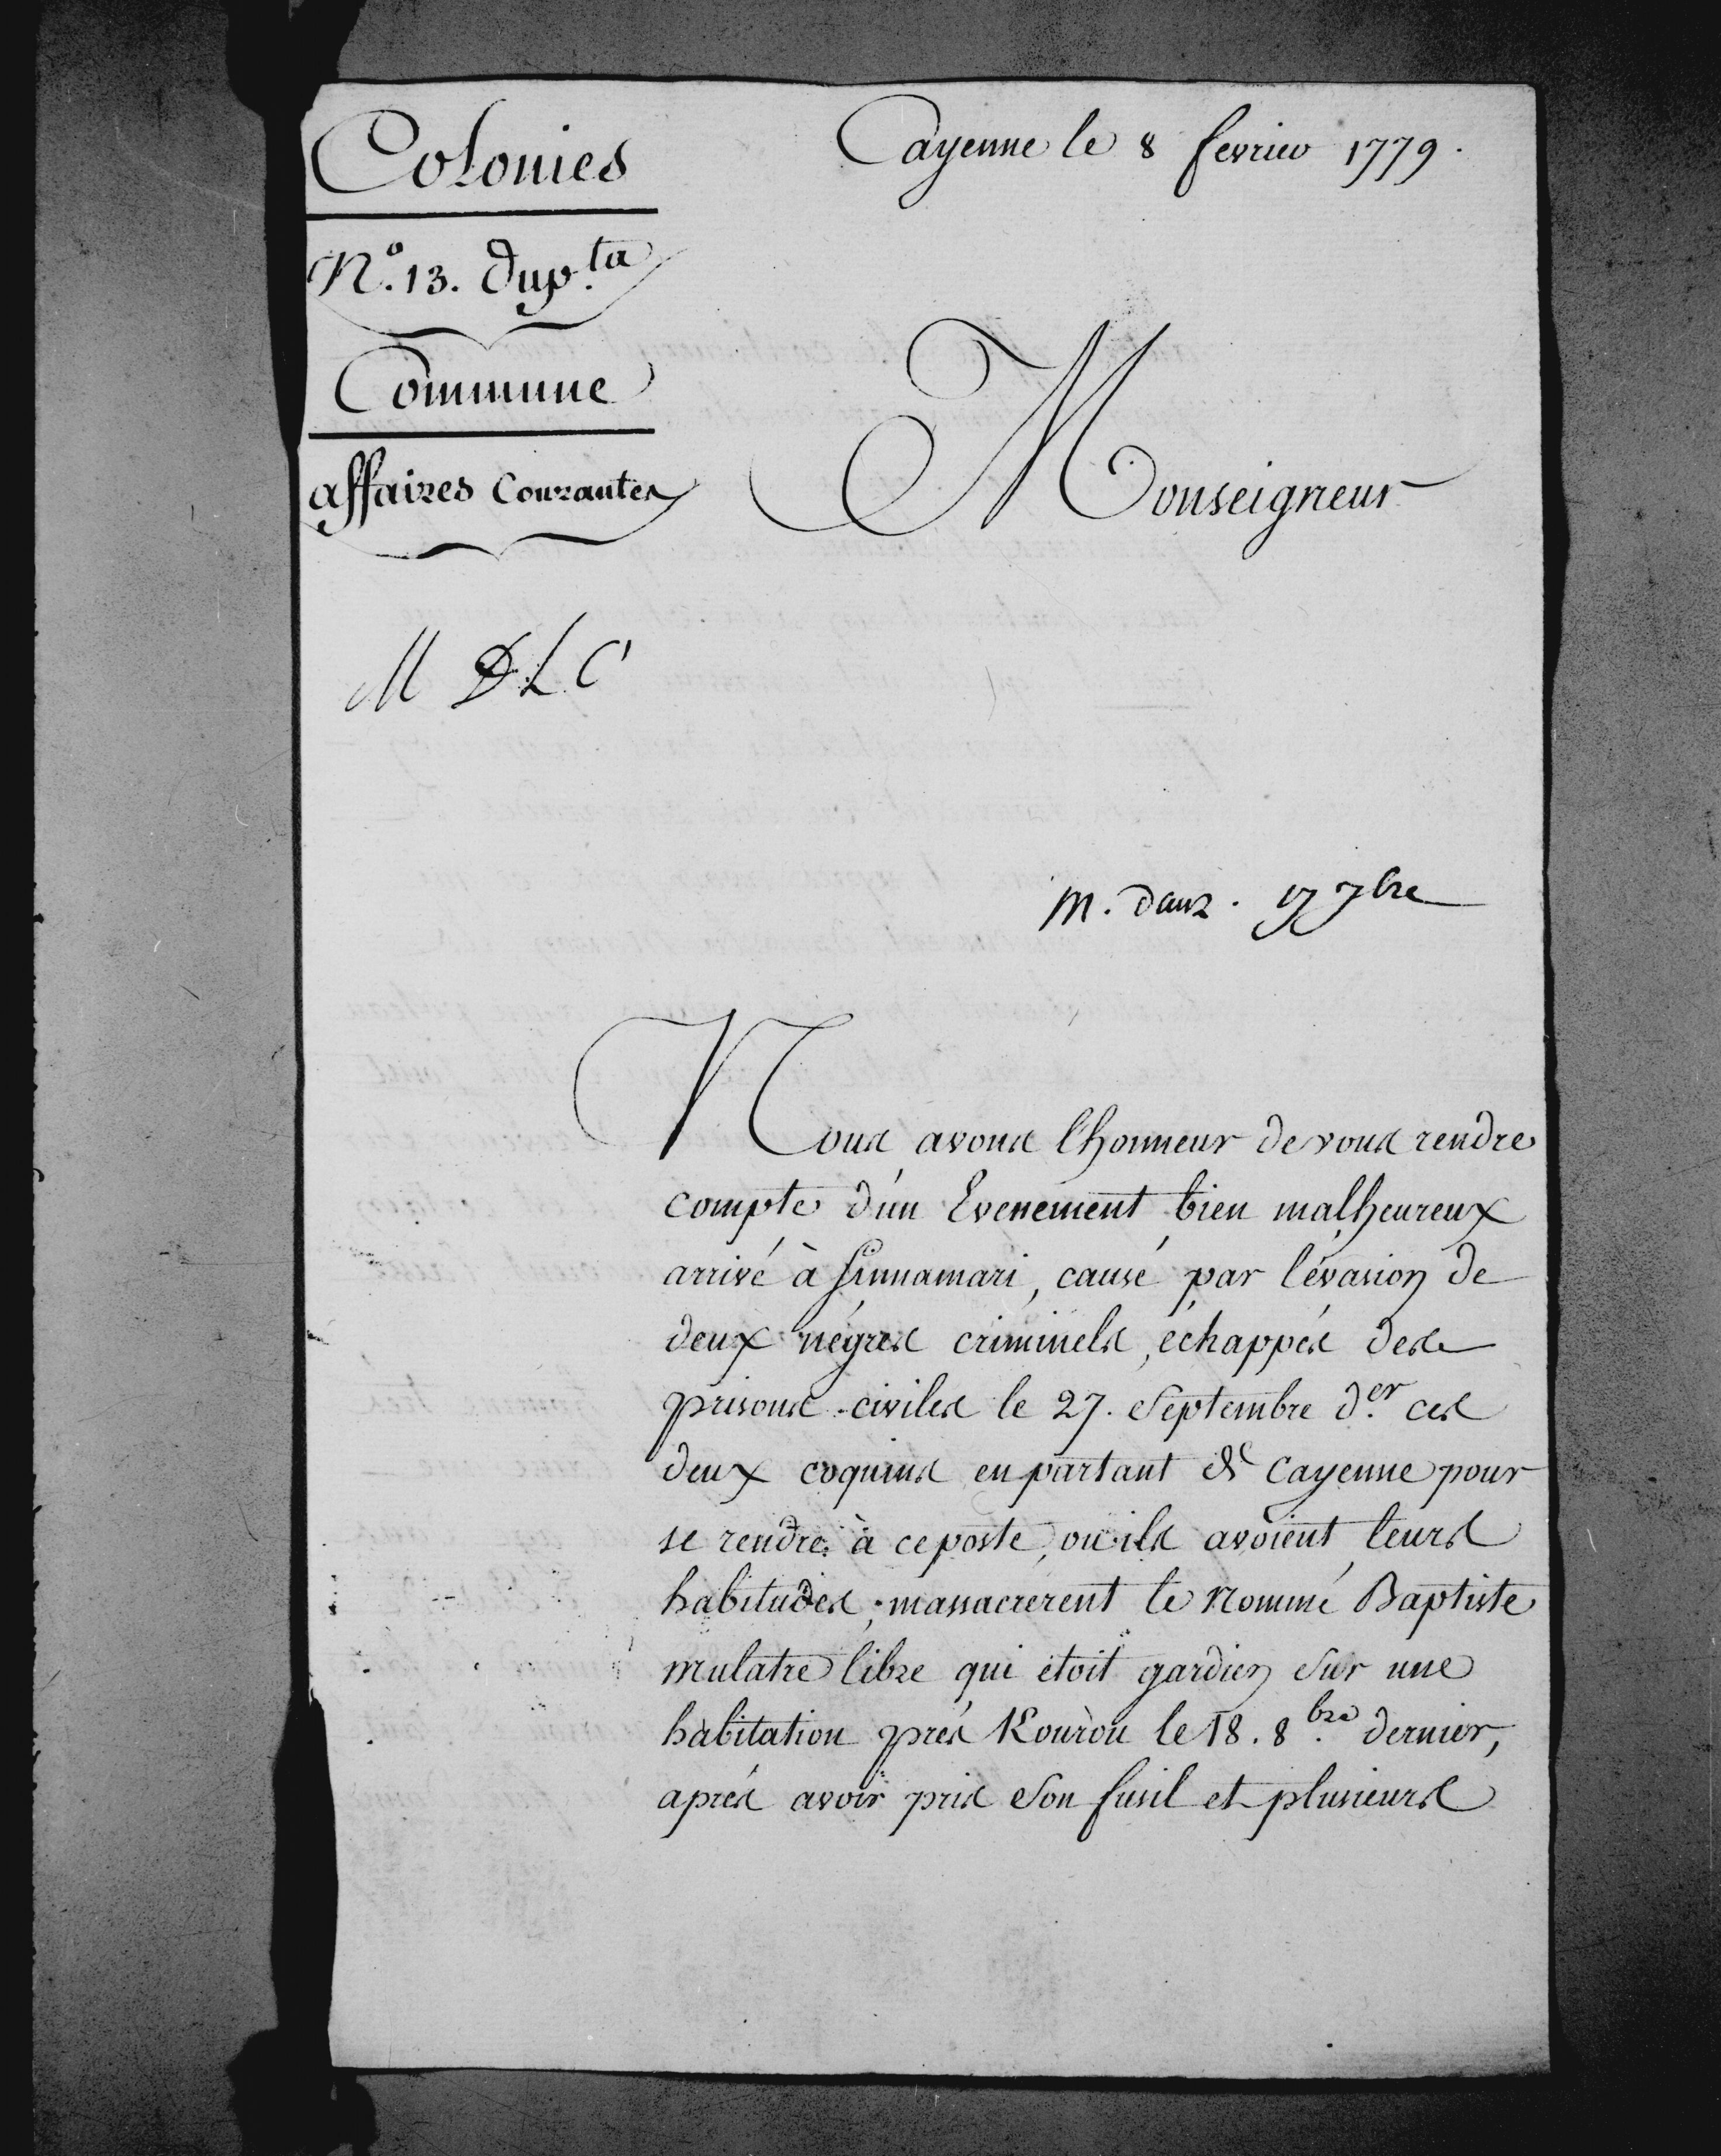 Colonies
Cayenne le 8 fevrier 1779.
N.o 13. Dup.ta
Commune
affaires Courantes
Monseigneur
M DLC
m. dauz. 17 7bre
Nous avons l'honneur de vous rendre
compte d'un Evenement bien malheureux
arrivé à Sinnamari, causé par l'évasion de
deux négres criminels, échappés des
prisons civiles le 27. Septembre d.er ces
deux coquins en partant de Cayenne pour
se rendre à ce poste, ou ils avoient leurs
habitudes, massacrerent le nommé Baptiste
mulatre libre qui étoit gardien sur une
habitation prés Kourou le 18. 8.bre dernier,
aprés avoir pris son fusil et plusieurs